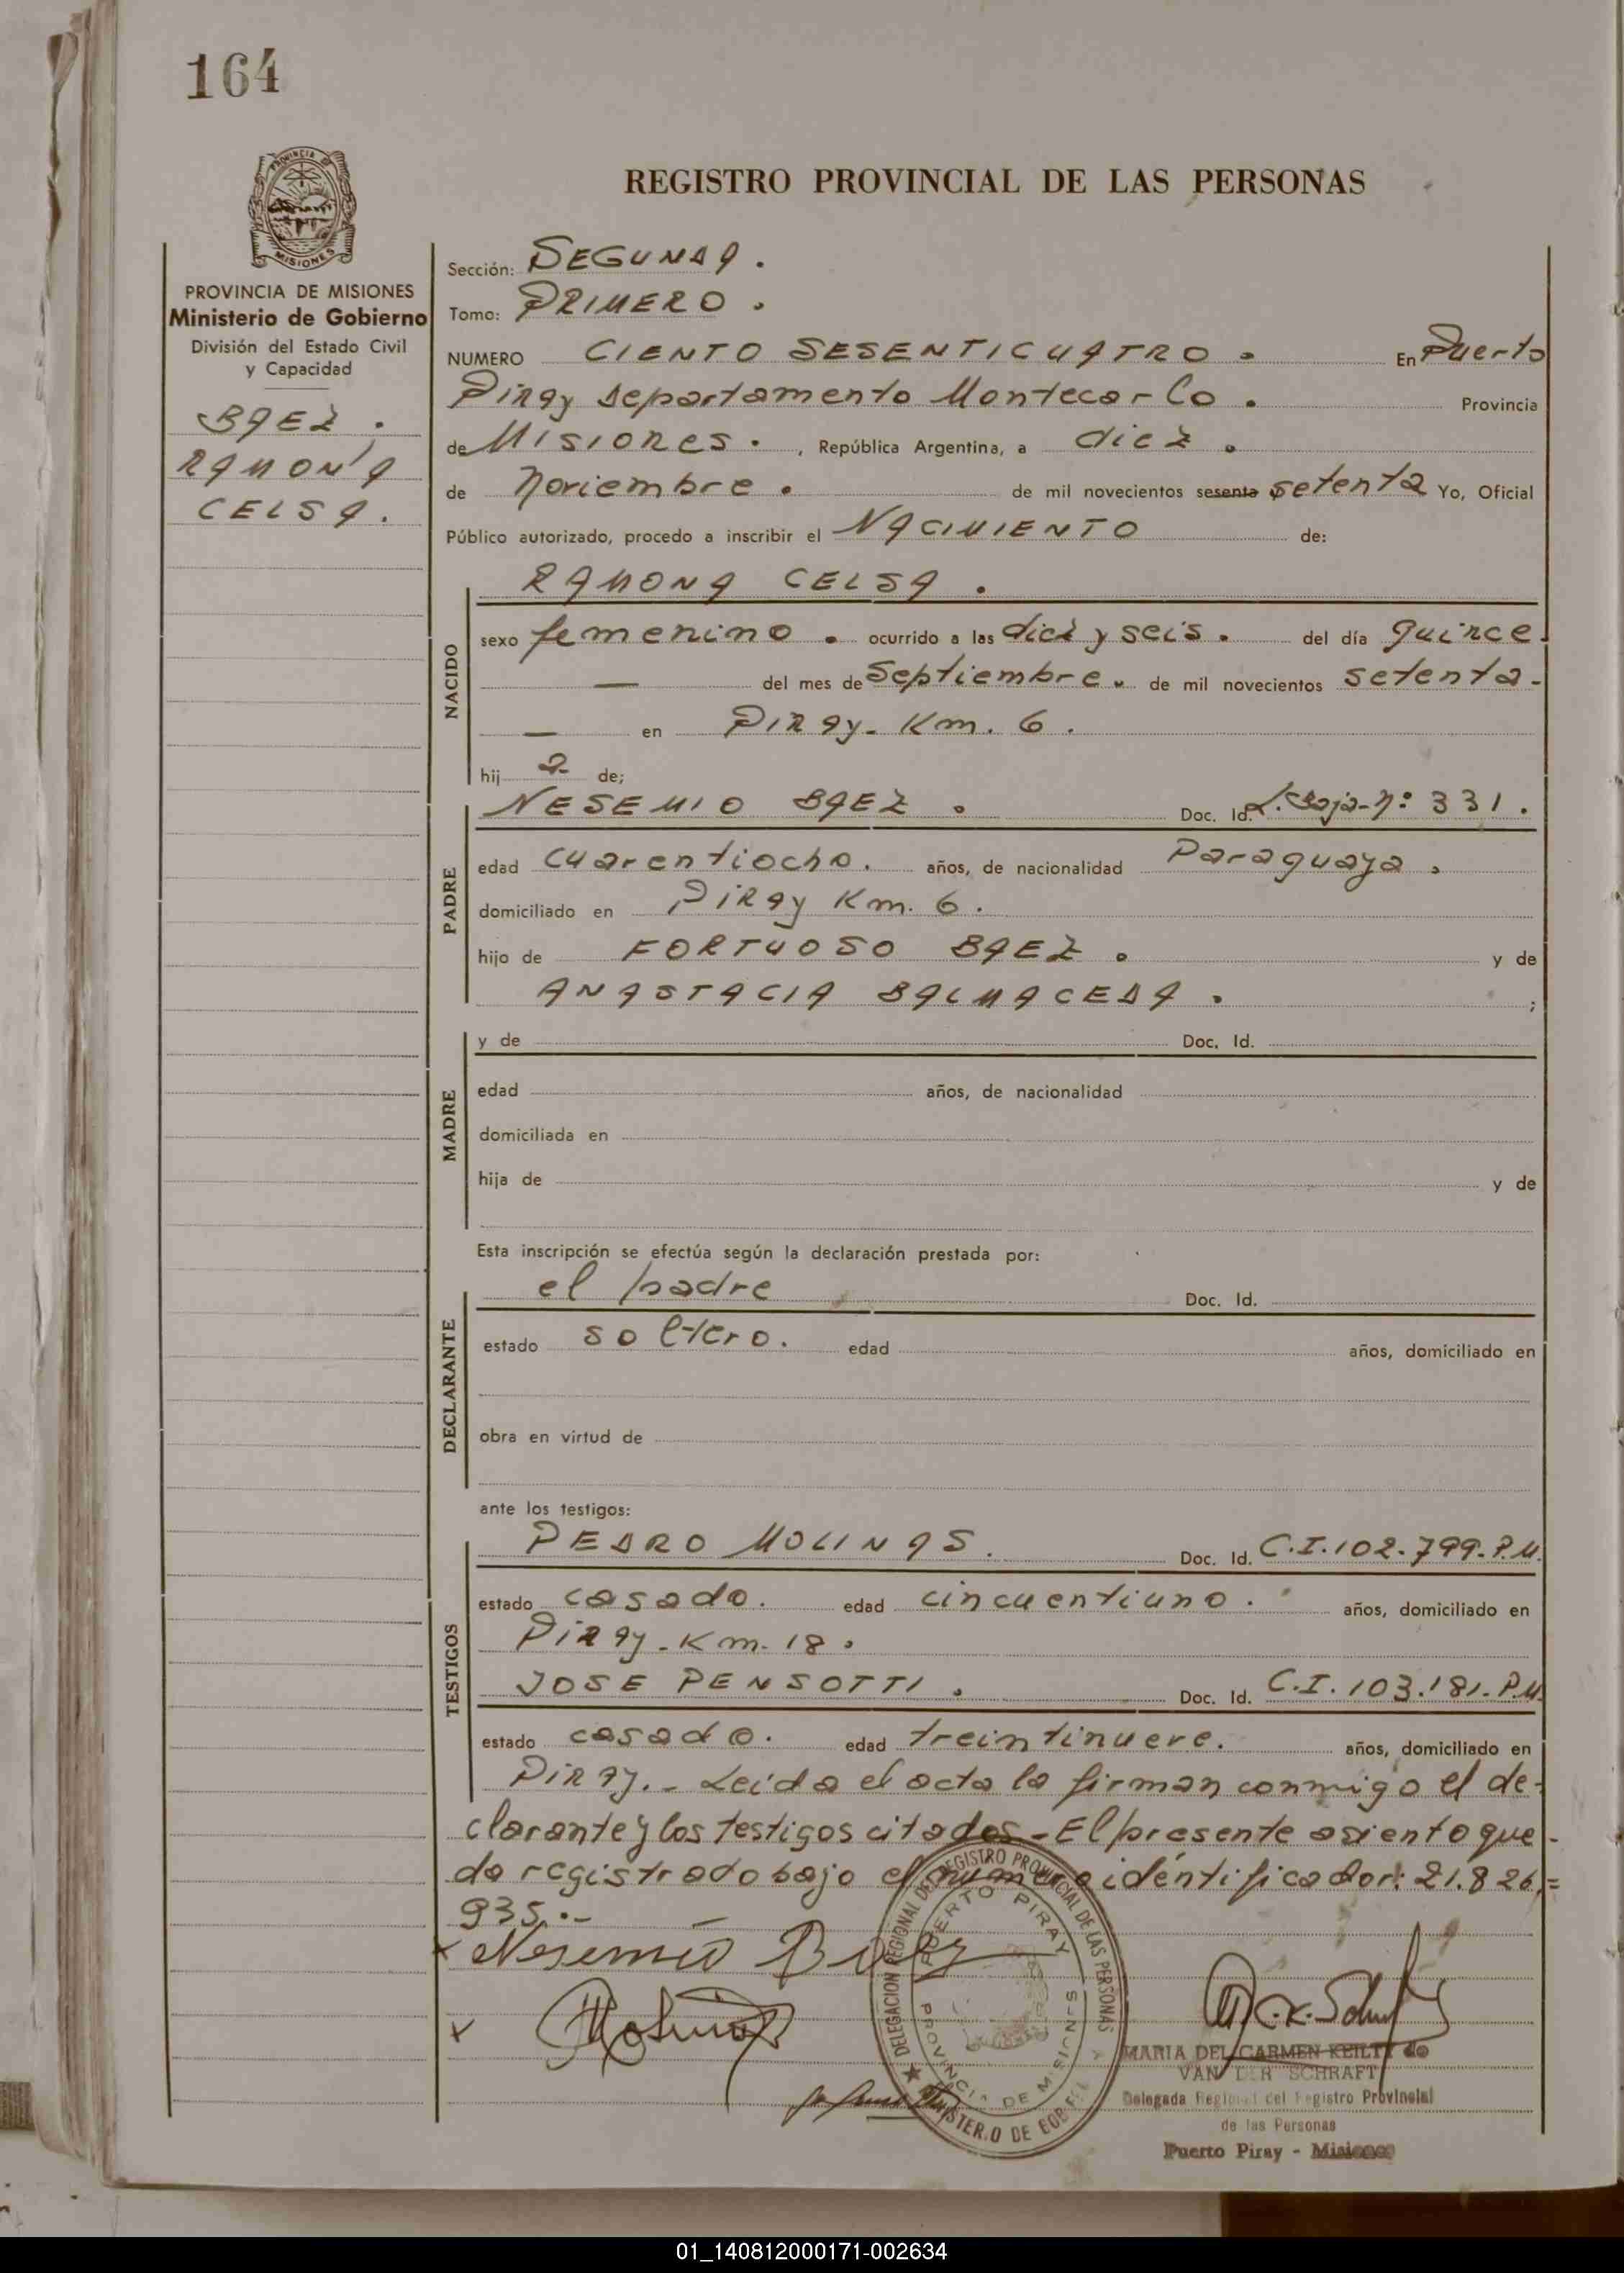 164
REGISTRO PROVINCIAL DE LAS PERSONAS
PROVINCIA DE MISIONES
Ministerio de Gobierno
División del Estado Civil
y Capacidad
BAEZ.
RAMONA
CELSA.
Sección: SEGUNDA.
Tomo: PRIMERO.
NUMERO CIENTO SESENTICUATRO. En Puerto
Piray departamento Montecarlo. Provincia
de Misiones., República Argentina, a diez.
de Noviembre. de mil novecientos sesenta setenta Yo, Oficial
Público autorizado, procedo a inscribir el NACIMIENTO de:
RAMONA CELSA.
NACIDO
sexo femenino. ocurrido a las diez y seis. del día quince.
— del mes de Septiembre. de mil novecientos setenta-
— en PIRAY- Km. 6.
hij a de;
PADRE
NESEMIO BAEZ. Doc. Id. L. Baja-Nº 331.
edad cuarentiocho. años, de nacionalidad Paraguaya.
domiciliado en PIRAY Km. 6.
hijo de FORTUOSO BAEZ. y de
ANASTACIA BALMACEDA. ;
MADRE
y de Doc. Id.
edad años, de nacionalidad
domiciliada en
hija de y de
Esta inscripción se efectúa según la declaración prestada por:
DECLARANTE
el padre Doc. Id.
estado soltero. edad años, domiciliado en
obra en virtud de
ante los testigos:
TESTIGOS
PEDRO MOLINAS. Doc. Id. C.I. 102.799-P.M.
estado casado. edad cincuentiuno. años, domiciliado en
PIRAY-Km. 18.
JOSE PENSOTTI. Doc. Id. C.I. 103.181-P.M.
estado casado. edad treintinueve. años, domiciliado en
PIRAY.- Leida el acta la firman conmigo el de-
clarante y los testigos citados - El presente asiento que-
da registrado bajo el numero identificador: 21.826.=
935.-
x Nesemio Baez
x Molinas
DELEGACION REGIONAL DEL REGISTRO PROVINCIAL DE LAS PERSONAS
PUERTO PIRAY
PROVINCIA DE MISIONES
MARIA DEL CARMEN KEILTY de
VAN DER SCHRAFT
Delegada Regional del Registro Provincial
de las Personas
Puerto Piray - Misiones
01_140812000171-002634